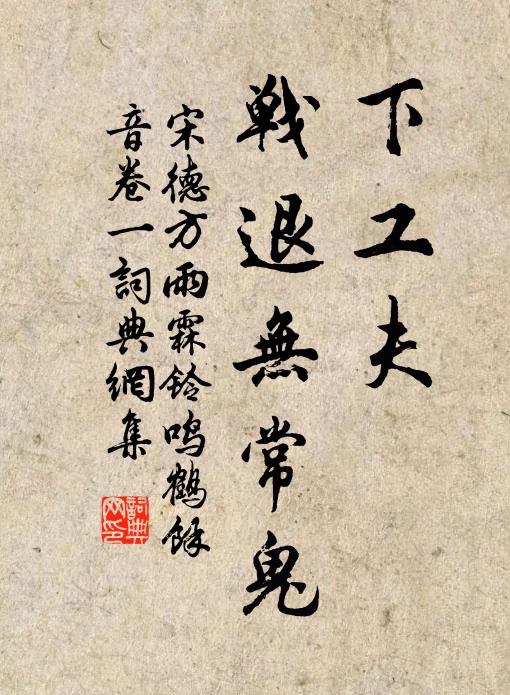 下工夫
戦退無常鬼
宋德方雨霖鈴鳴鶴餘
音卷一詞典網集
詞典
网印